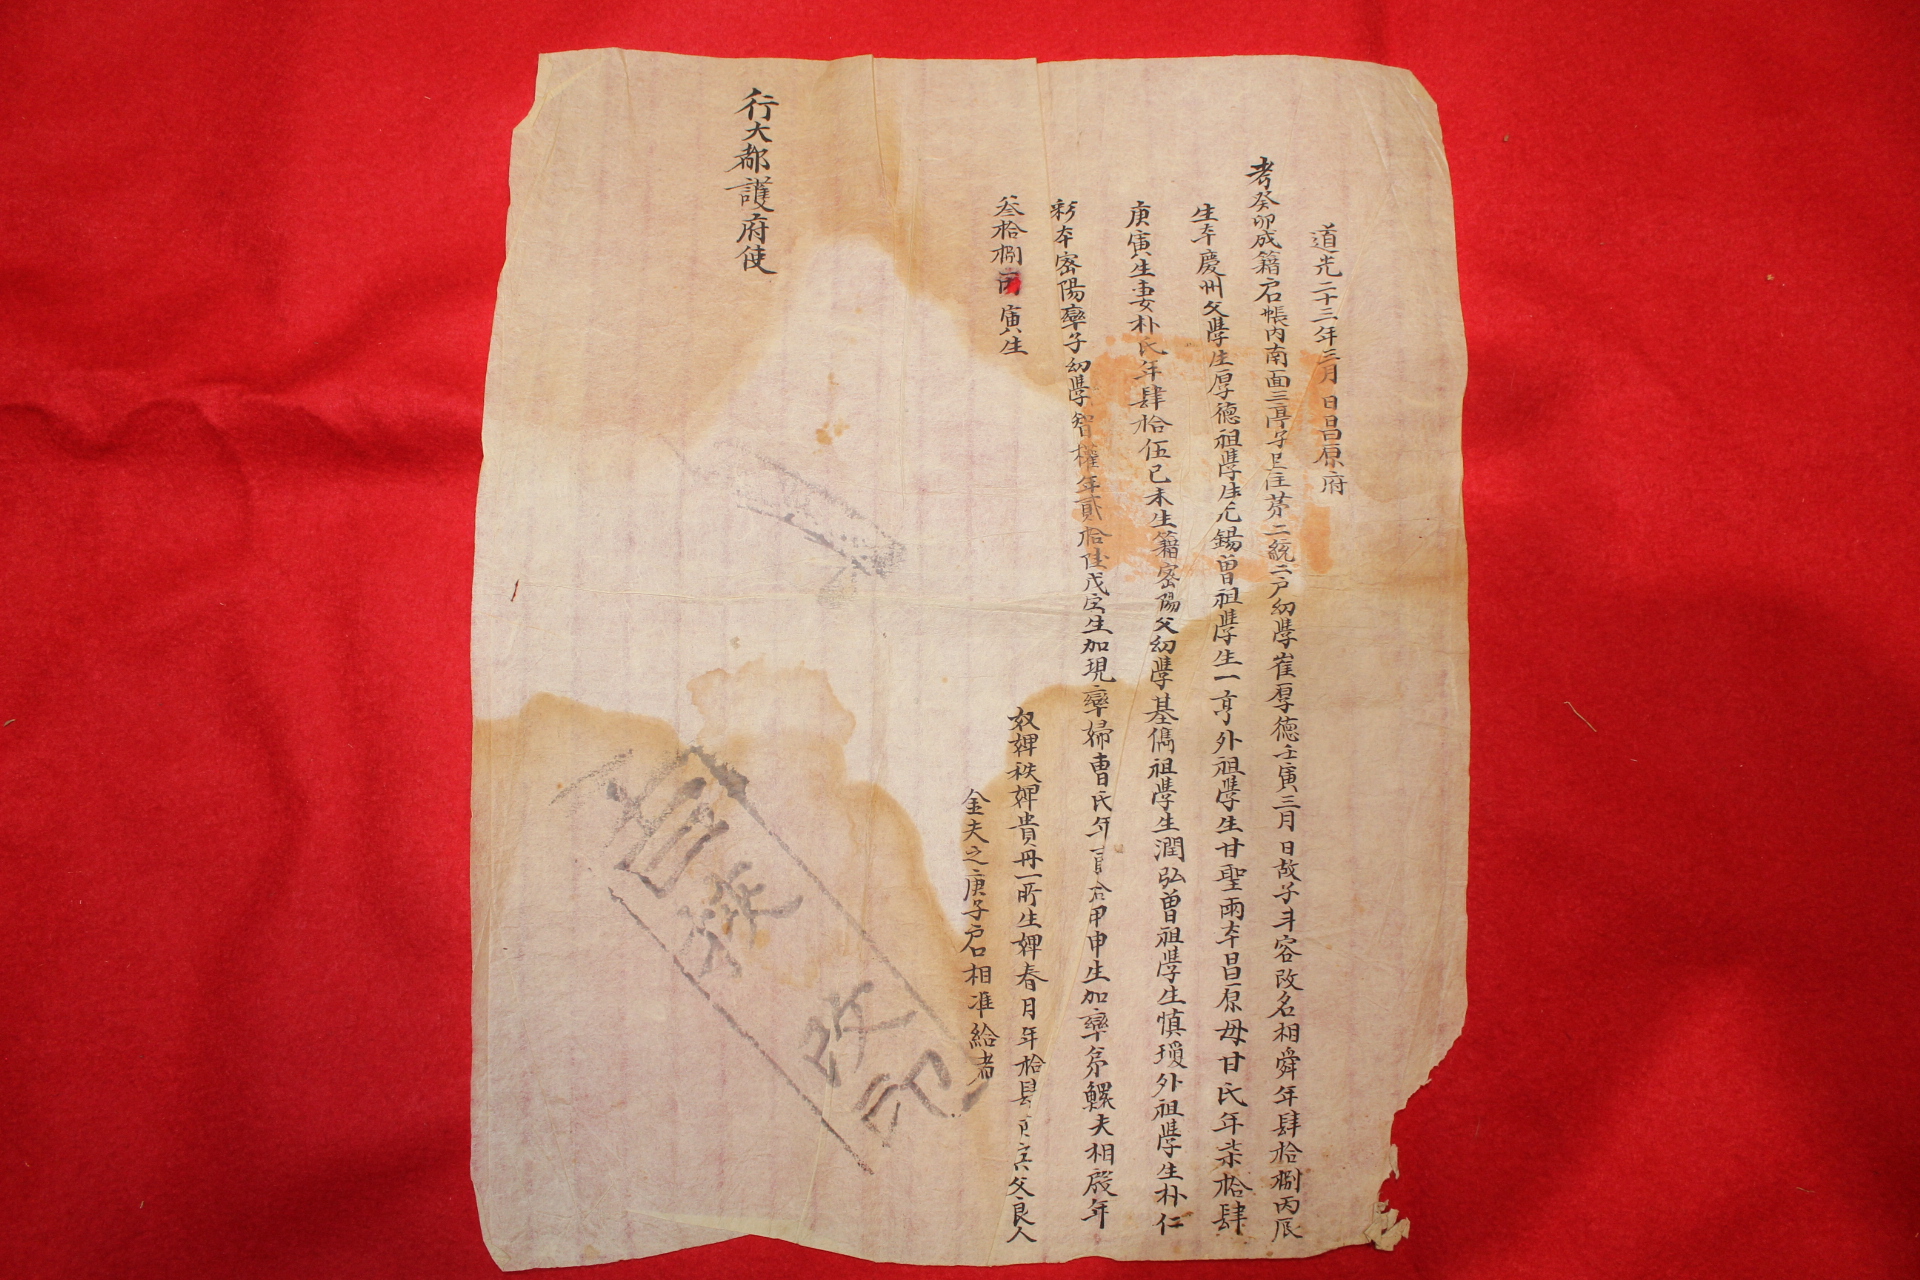 道光二十三年三月 日昌原府
考癸卯成籍戶帳內南面三亭子里住第二統二戶幼學崔厚德壬寅三月日故子斗容改名相舜年肆拾捌丙辰
生本慶州父學生厚德祖學生元錫曾祖學生一亨外祖學生甘聖雨本昌原母甘氏年柒拾肆
庚寅生妻朴氏年肆拾伍己未生籍密陽父幼學基儁祖學生潤弘曾祖學生慎瓊外祖學生朴仁
彩本密陽率子幼學智權年貳拾陸戊寅生加現率婦曹氏年貳拾甲申生加率弟鰥夫相殷年
叁拾捌丙寅生
奴婢秩婢貴丹一所生婢春月年拾肆庚寅父良人
金夫之庚子戶口相准給者
行大都護府使
改印